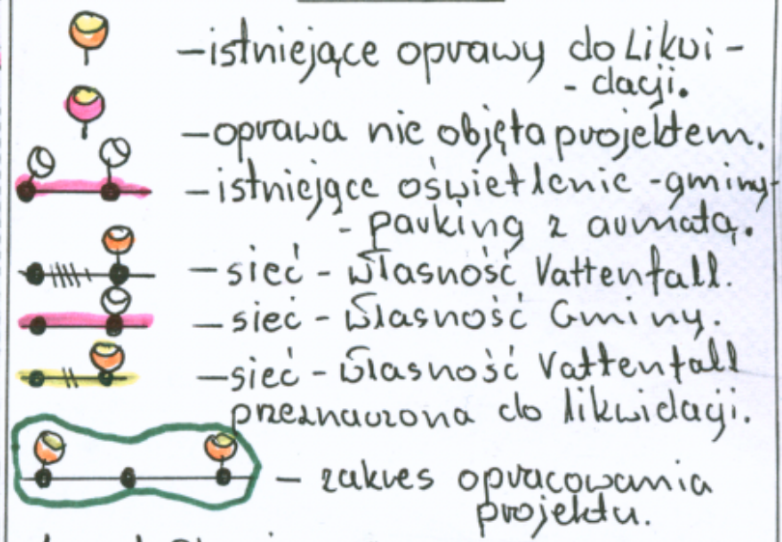 – istniejące oprawy do Likwi -
- dacji.
– oprawa nie objęta projektem.
– istniejące oświetlenie - gminy-
- parking z armatą.
– sieć - własność Vattenfall.
– sieć - własność Gminy.
– sieć - własność Vattenfall
przeznaczona do likwidacji.
– zakres opracowania
projektu.